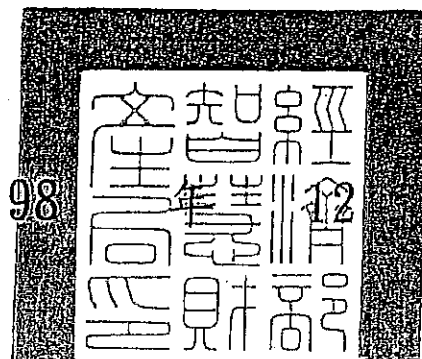 經濟部
智慧財
產局印
98 年 12